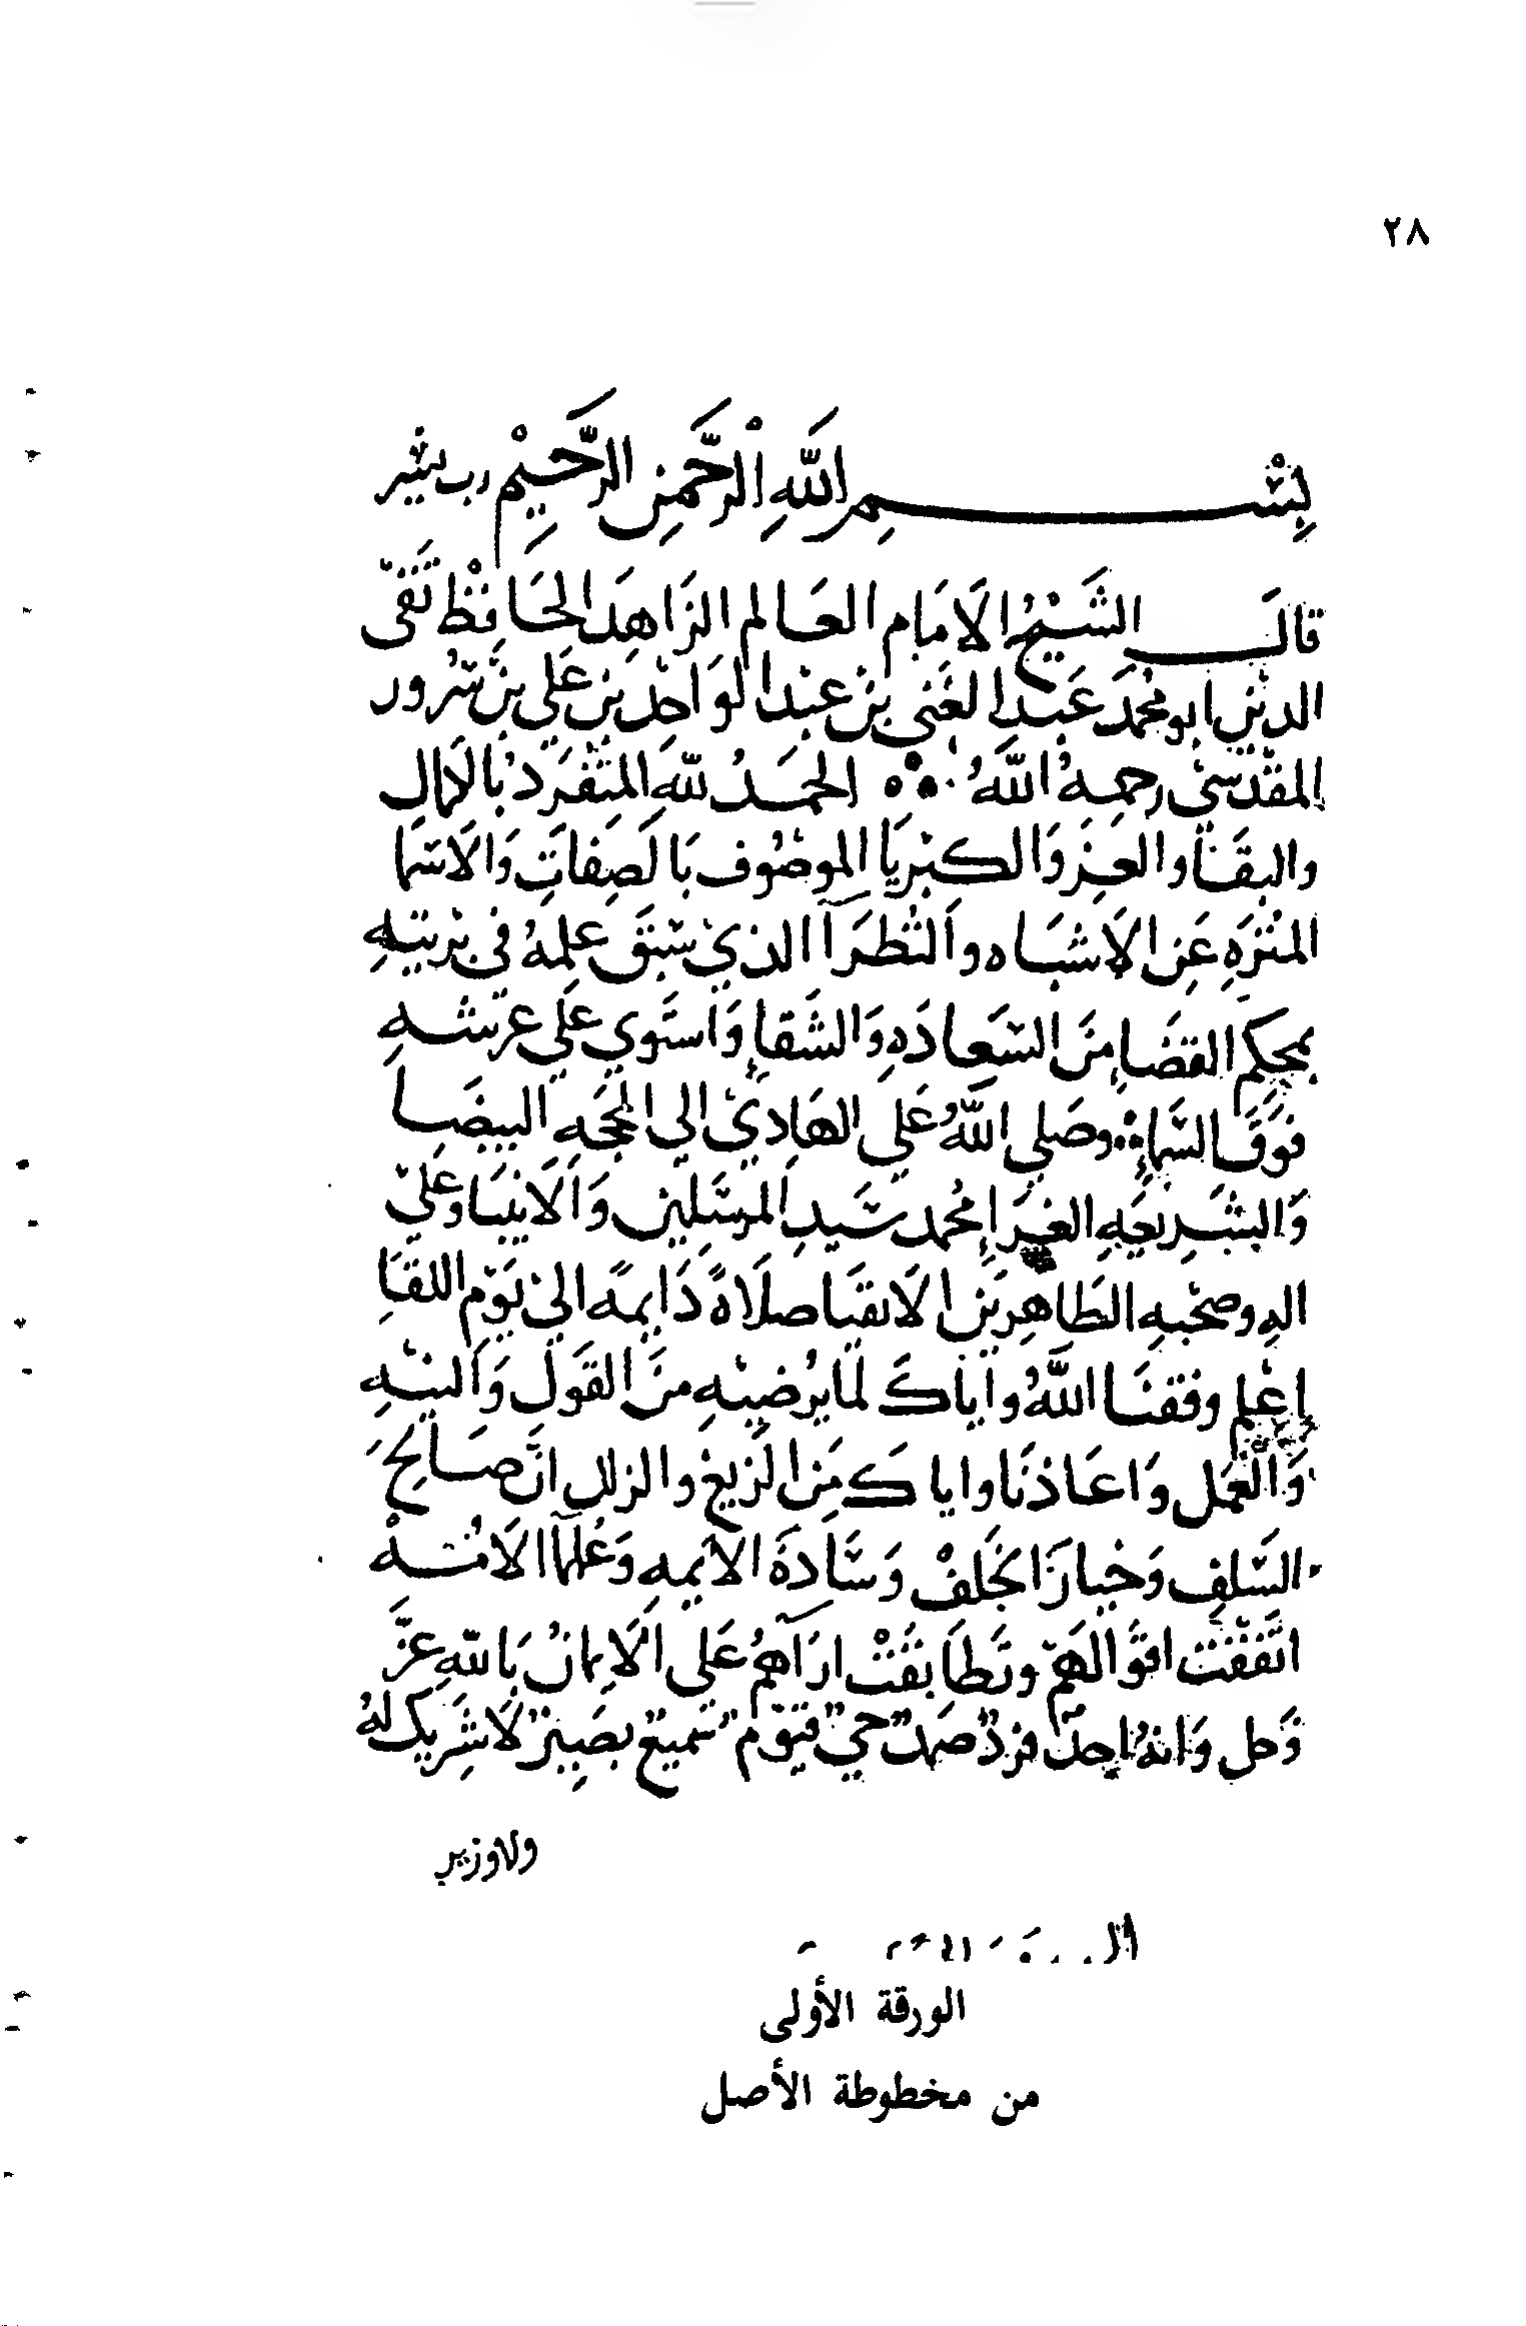 ٢٨
بسم الله الرحمن الرحيم رب يسر
قال الشيخ الامام العالم الزاهد الحافظ تقى
الدين ابو محمد عبد الغني بن عبد الواحد بن علي بن سرور
المقدسي رحمه الله الحمد لله المتفرد بالكمال
والبقا والعز والكبريا الموصوف بالصفات والاسما
المنزه عن الاشباه والنظرآ الذي سبق علمه في بريته
بمحكم القضاء من السعاده والشقاء واستوي علي عرشه
فوق السماء وصلي الله علي الهادي الي المحجه البيضا
والشريعه الغراء محمد سيد المرسلين والانبيا وعلي
اله وصحبه الطاهرين الاتقيا صلاة دايمة الي يوم اللقا
اعلم وفقنا الله واياك لما يرضيه من القول والنيه
والعمل واعاذنا واياك من الزيغ والزلل ان صالح
السلف وخيار الخلف وسادة الايمه وعلمآ الامه
اتفقت اقوالهم وتطابقت ارآهم علي الايمان بالله عز
وجل وانه احد فرد صمد حي قيوم سميع بصير لا شريك له
ولا وزير
الورقة الأولى
من مخطوطة الأصل